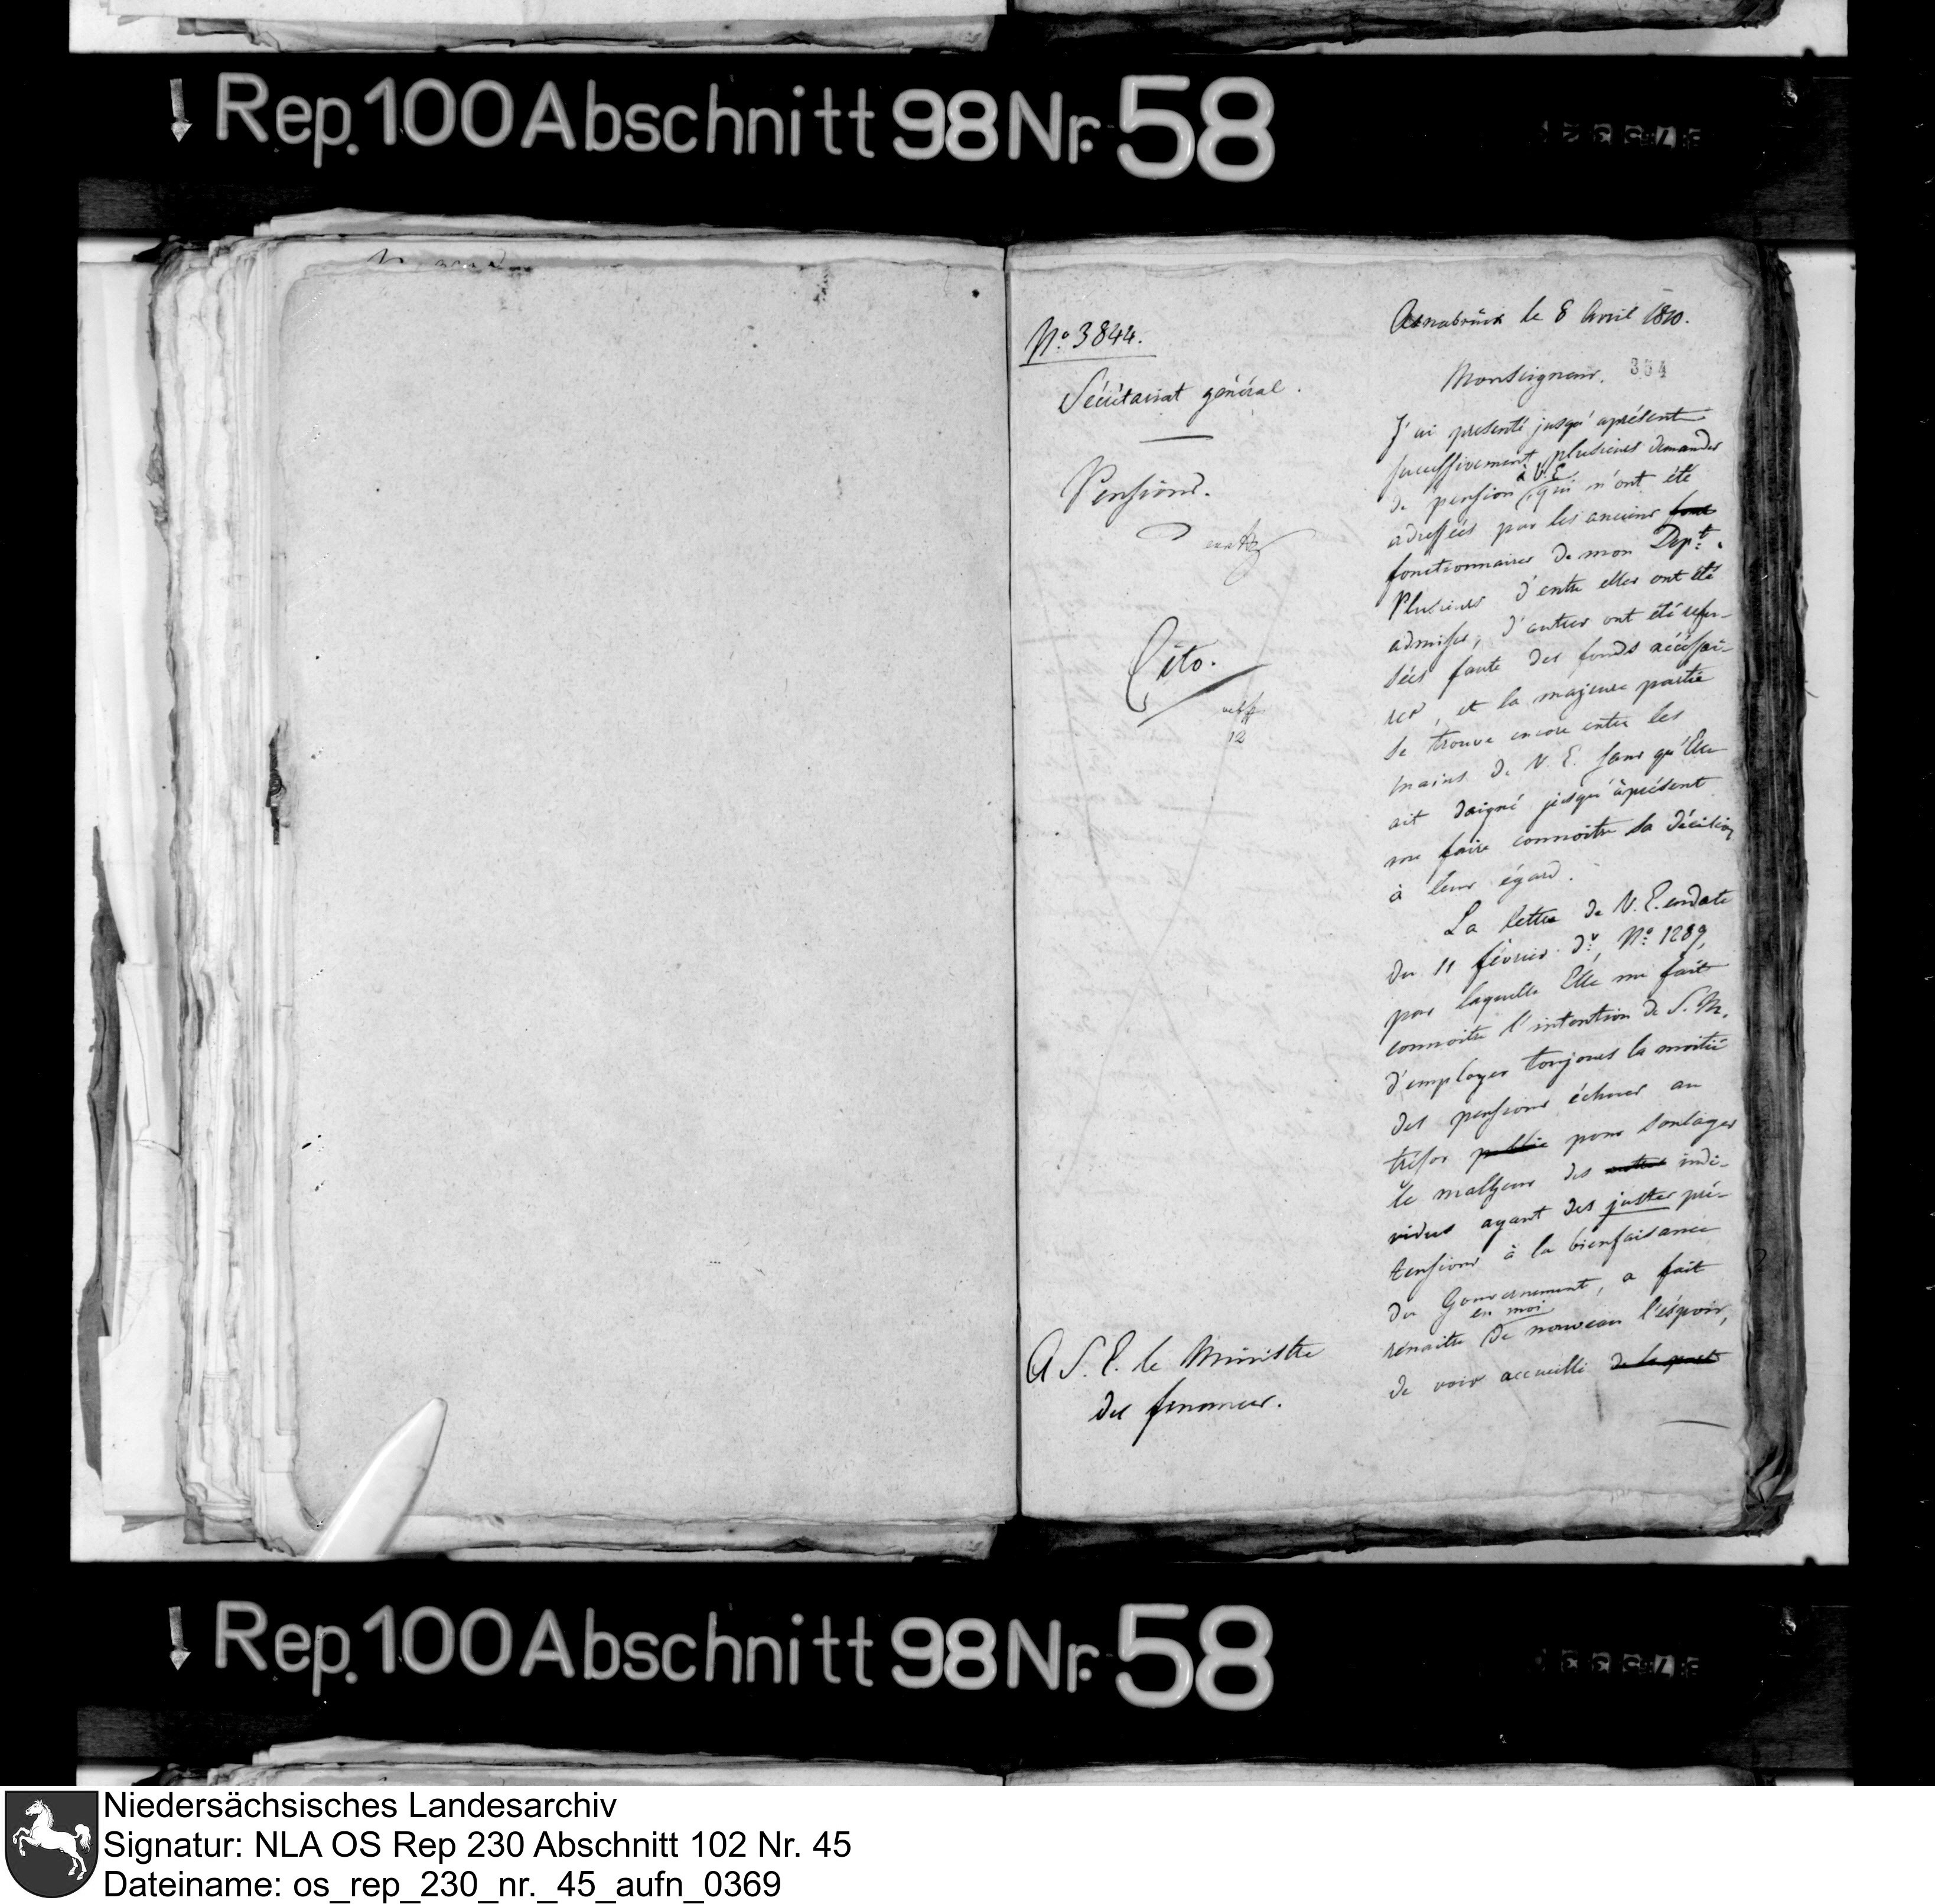 Rep. 100 Abschnitt 98 Nr. 58
No. 3844.
Sécrétariat général.
Pensions.
Cito.
12
A S. E. le Ministre
des finances.
Osnabrück le 8 Avril 1810.
Monseigneur. 364
J'ai presenté jusqu'aprésent
successivement plusieurs demandes
de pension à V. E. qui m'ont été
adressées par les anciens
fonctionnaires de mon Dept.
Plusieurs d'entre elles ont été
admises, d'autres ont été refu-
sées faute des fonds nécéssai-
res, et la majeure partie
se trouve encore entre les
mains de V. E. sans qu'Elle
ait daigné jusqu'àprésent
me faire connoitre sa décision
à leur égard.
La lettre de V. E. endate
du 11 février dr, No. 1289,
par laquelle Elle me fait
connoitre l'intention de S. M.
d'employer toujours la moitié
des pensions échues au
trésor public pour soulager
le malheur des indi-
vidus ayant des justes pré-
tensions à la bienfaisance
du Gouvernement, a fait
renaitre en moi de nouveau l'éspoir,
de voir accueilli de la part
Rep. 100 Abschnitt 98 Nr. 58
Niedersächsisches Landesarchiv
Signatur: NLA OS Rep 230 Abschnitt 102 Nr. 45
Dateiname: os_rep_230_nr._45_aufn_0369